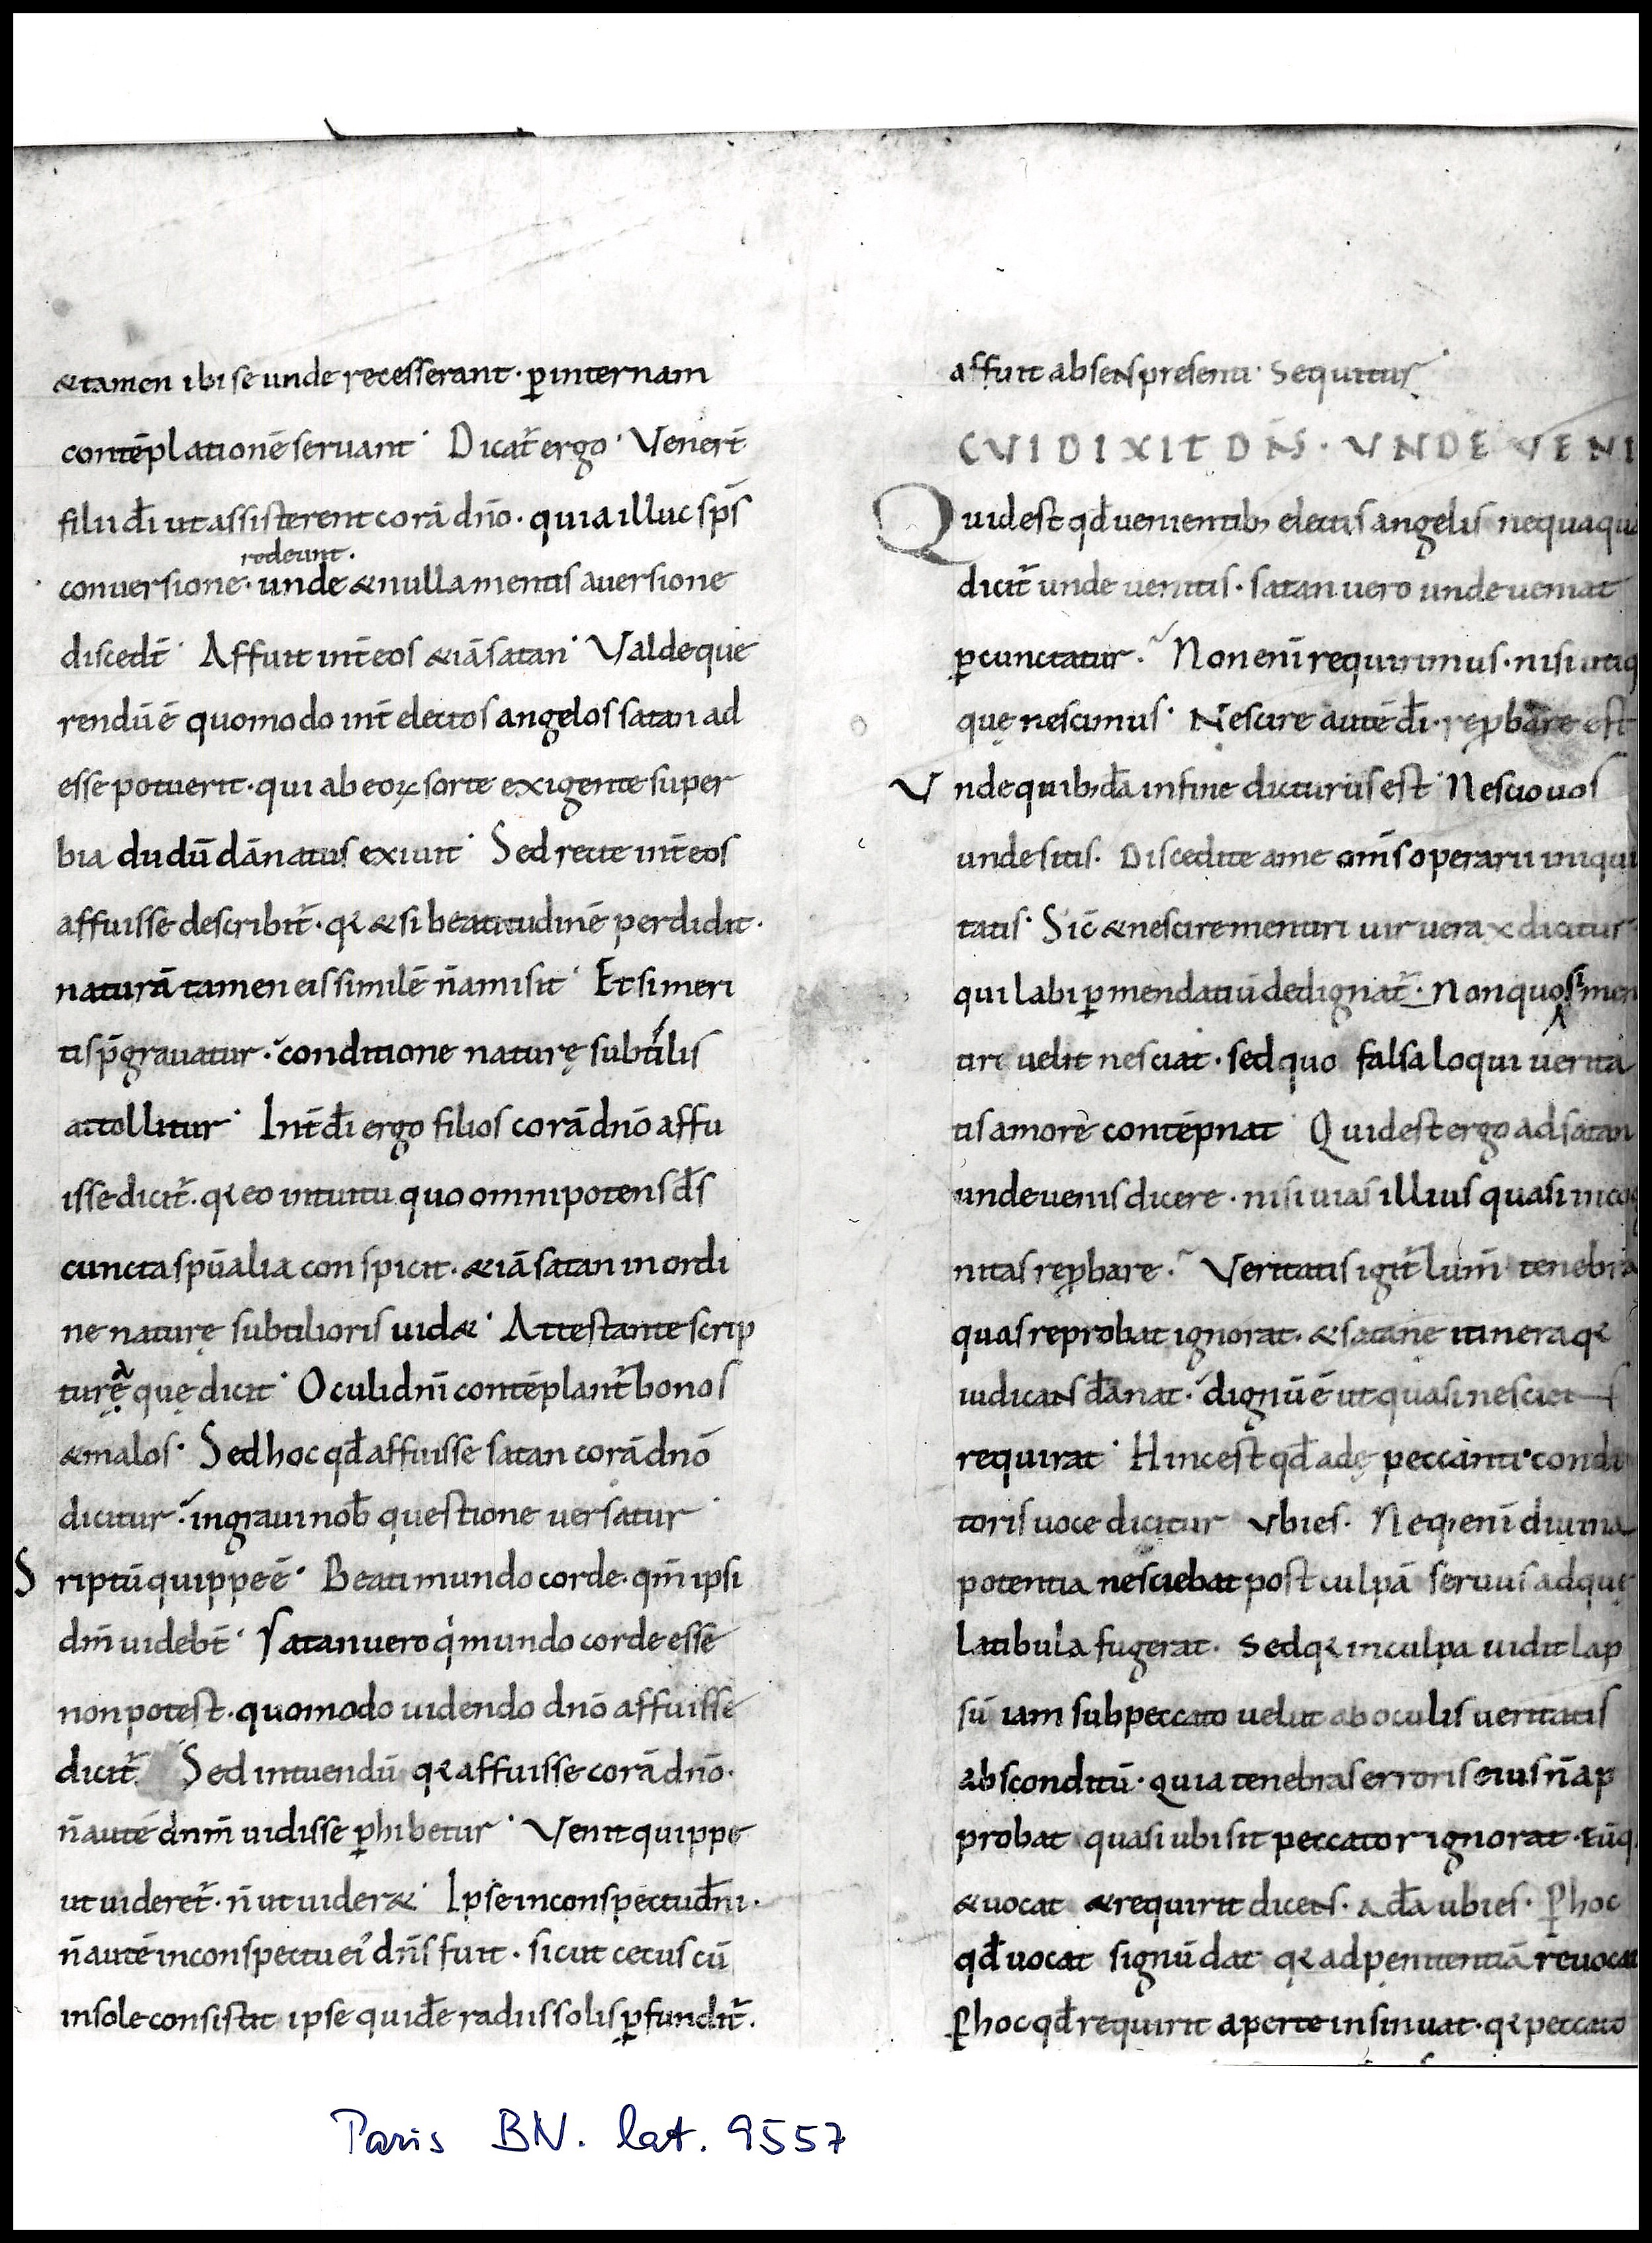 &tamen ibi se unde recesserant · ꝑ internam
contēplationē seruant · Dicat̄ ergo · Venert̄
filii dī ut assisterent corā dn̄o · quia illuc sp̄s
redeunt ·
conuersione · unde & nulla mentis auersione
discedt̄ · Affuit int̄ eos & iā satan · Valde que
rendū ē quomodo int̄ electos angelos satan ad
esse potuerit · qui ab eoꝝ sorte exigente super
bia dudū dānatus exiuit · Sed recte int̄ eos
affuisse describit̄ · qꝛ & si beatitudinē perdidit ·
naturā tamen eis similē n̄ amisit · Et si meri
tis p̄grauatur · conditione naturę subtilis
attollitur · Int̄ dī ergo filios corā dn̄o affu
isse dicit̄ · qꝛ eo intuitu quo omnipotens ds̄
cuncta spū̄alia conspicit · & iā satan in ordi
ne naturę subtilioris uid& · Attestante scrip
turę̄ quę dicit · Oculi dn̄i contēplant̄ bonos
& malos · Sed hoc qd̄ affuisse satan corā dn̄o
dicitur · in graui nob̄ questione versatur ·
Scriptū quippe ē · Beati mundo corde · qm̄ ipsi
dm̄ uidebt̄ · Satan uero qi mundo corde esse
non potest · quomodo uidendo dn̄o affuisse
dicit̄ Sed intuendū qꝛ affuisse corā dn̄o ·
n̄ autē dnm̄ uidisse ꝑhibetur · Venit quippe
ut uideret̄ · n̄ ut uider& · Ipse in conspectu dn̄i ·
n̄ autē in conspectu ei' dn̄s fuit · sicut cecus cū
in sole consistit ipse quidē radiis solis ꝑfundit̄ ·
affuit absens presenti · Sequitur
CVI DIXIT DN̄S · VNDE VENI
Quid est qd̄ uenientibꝫ electis angelis nequaqu
dicit̄ unde uenitis · satan uero unde ueniat
ꝑcunctatur · Non enī requirimus · nisi utiq
quę nescimus · Nescire autē dī · reꝓbare est
Vnde quibꝫdā in fine dicturus est · Nescio uos
unde sitis · Discedite a me om̄s operarii iniqui
tatis · Sic̄ & nescire mentiri uir uerax dicitur ·
qui labi ꝑ mendatiū dedignat̄ · Non quo si men
tiri velit nesciat · sed quo falsa loqui verita
tis amore contēpnat · Quid est ergo ad satan
unde uenis dicere · nisi uias illius quasi incog
nitas reꝓbare · Veritatis igit̄ lum̄ tenebra
quas reprobat ignorat · & satane itinera qꝛ
iudicans dānat · dignū ē ut quasi nesciens
requirat · Hinc est qd̄ adę peccanti · condi
toris uoce dicitur Vbi es · Neqꝫ enī diuina
potentia nesciebat post culpā seruus ad quę
latibula fugerat · Sed qꝛ in culpa uidit lap
sū iam sub peccato velut ab oculis veritatis
absconditū · quia tenebras erroris eius n̄ ap
probat quasi ubi sit peccator ignorat · eūq
& uocat & requirit dicens · adā ubi es · ꝑ hoc
qd̄ uocat signū dat qꝛ ad penitentiā reuocat
ꝑ hoc qd̄ requirit aperte insinuat · qꝛ peccato
Paris BN. lat. 9557